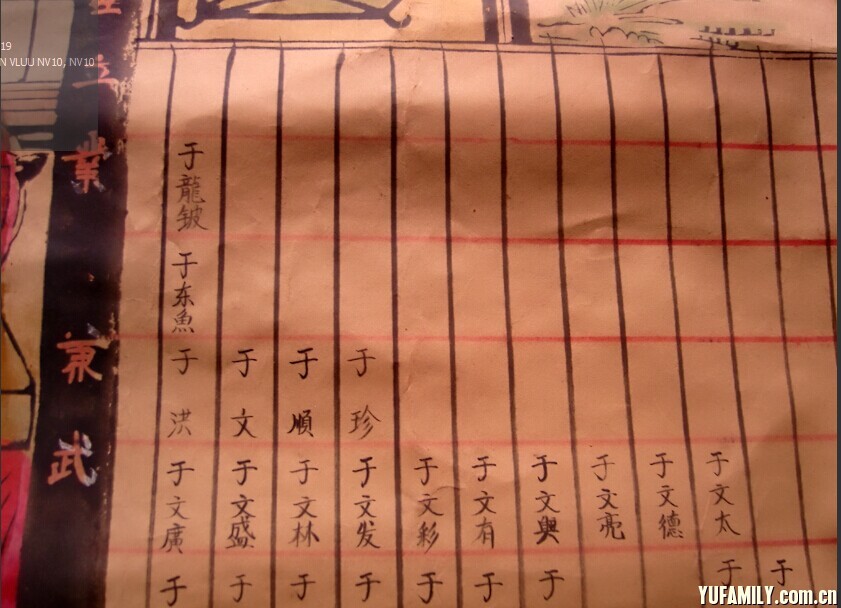 19
N VLUU NV10, NV10
立
業
兼
武
于龍鈹
于东魚
于洪
于文
于順
于珍
于文廣
于文盛
于文林
于文发
于文彩
于文有
于文興
于文亮
于文德
于文太
于
于
于
于
于
于
于
于
于
YUFAMILY.com.cn